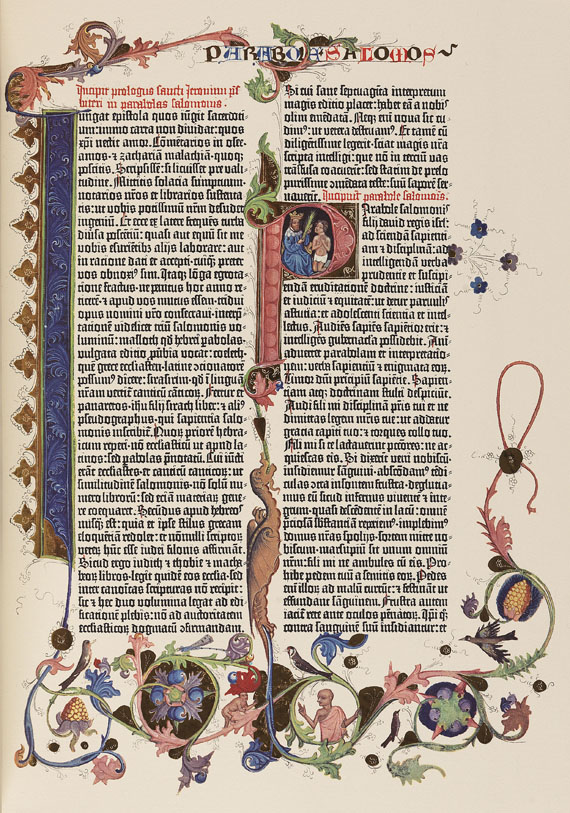 PARABOLE SALOMOIS
Incipit prologus sancti Jeronimi p̄s
biteri in parabolas salomonis.
Iungat epistola quos iūgit sacerdoti-
um: immo carta non dividat: quos
xp̄i nectit amor. Cōmētarios in osee.
amos. ⁊ zachariā malachiā. quoqꝫ
poscitis. Scripsissē: si licuisset pre vali-
tudine. Mittitis solacia sumptuum.
notarios nr̄os et librarios sustenta-
tis: ut vobis potissimū nr̄m desudet
ingeniū. Et ecce ex latere frequēs turba
diūsa poscētiū: quasi aut equū sit me
vobis esuriētibꝫ alijs laborare: aut
in ratione dati et accepti. cuiqꝫ preter
vos obnoxiꝰ sim. Itaqꝫ lōga egrota-
tione fractus. ne penitus hoc anno re-
ticerē. ⁊ apud vos mutus essem. tridui
opus nomini vr̄o consecraui. interp̄-
tationē videlicet triū salomonis vo-
luminū: masloth qd̄ hebrei pabolas.
vulgata editio ꝓūbia vocat: coeleth.
quē grece ecclesiastē. latine ꝯcionatorē
possumꝰ dicere: sirasirim. qd̄ ī linguā
nr̄am vertit̄ canticū cāticoꝝ. Fertur et
panaretos. ihu filij sirach liber: ⁊ aliꝰ
pseudographus. qui sapientia salo-
monis inscribit̄. Quoꝝ priorē hebra-
icum repperi. nō ecclesiasticū ut apud la-
tinos: sed pabolas p̄notatū. Cui iūcti
erant ecclesiastes. et canticū canticoꝝ: ut
similitudinē salomonis. nō solū nu-
mero librorū: sed etiā materiaꝝ gene-
re coequaret. Secūdus apud hebreos
nusqꝫ est: quia et ipse stilus grecam
eloquētiā redolet: et nōnulli scriptoꝝ
veterꝝ hūc esse iudei filonis affirmāt.
Sicud ergo iudith ⁊ thobie ⁊ macha-
beoꝝ libros. legit quidē eos ecclīa. sed
inter canonicas scripturas nō recipit:
sic ⁊ hec duo volumina legat ad edi-
ficationē plebis: nō ad auctoritatem
ecclesiasticoꝝ dogmatū ꝯfirmandam.
Si cui sane septuagīta interpretum
magis editio placet: habet eā a nobis
olim emēdatā. Neqꝫ eni ̄ noua sic cu-
dimꝰ: ut vetera destruamꝰ. Et tamē cū
diligētissime legerit. sciat magis nr̄a
scripta intelligi: que nō in terciū vas
trāsfusa coacuerīt: sed statim de prelo
purissime ꝯmēdata teste: suū saporē ser-
uauerīt. Incipiūt parabole salomōis.
Parabole salomonis
filij dauid regis isrl̄:
ad sciendā sapienti-
am ⁊ disciplinā: ad
intelligendā verba
prudentie et suscipi-
endā eruditationē doctrine: iusticiā
et iudiciū ⁊ equitatē: ut detur paruulis
astutia: et adolescenti scientia et intel-
lectus. Audiēs sapiēs sapiētior erit: ⁊
intelligēs gubernacla possidebit. Ani-
aduertet parabolam et interpretatio-
nem: verba sapientiū ⁊ enigmata eoꝝ.
Timor dn̄i principiū sapiētie. Sapien-
tiam atqꝫ doctrinam stulti despiciūt.
Audi fili mi disciplinā pr̄is tui et ne
dimittas legem mr̄is tue: ut addatur
gratia capiti tuo: ⁊ torques collo tuo.
Fili mi si te lactauerint pctōres: ne ac-
quiescas eis. Si dixerīt veni nobiscū.
insidiemur sāguini. abscōdamꝰ tēdi-
culas ꝯtra insontem frustra. deglutia-
mus eū sicud infernus viuente ⁊ inte-
grum. quasi descēdentē in lacū: omnē
p̄ciosā sb̄stanciā reperiemꝰ. implebimꝰ
domus nr̄as spolijs. sortem mitte no-
biscum. marsupiū sit vnum omnium
nr̄m: fili mi ne ambules cū eis. Pro-
hibe pedem tuū a semitis eoꝝ. Pedes
eni ̄ illoꝝ ad malū currūt: ⁊ festināt ut
effundant sanguinem. Frustra autem
iacit̄ rete ante oculos pēnatoꝝ. Ip̄i qꝫ
contra sanguinē suū insidiantur: et